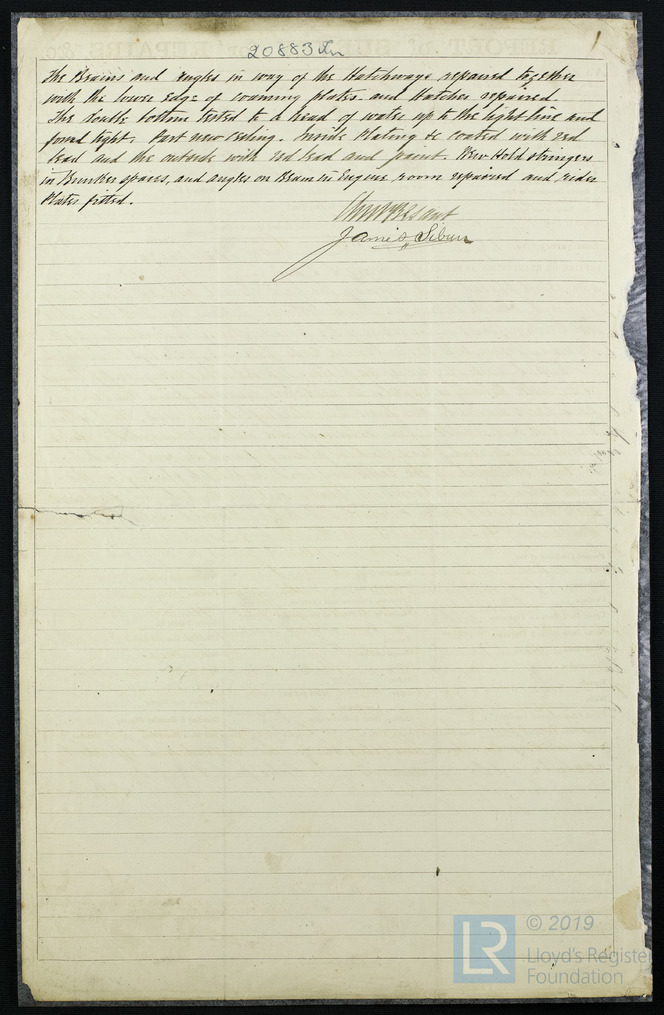 20883
The Beams and angles in way of the Hatchways repaired together
with the lower edge of coaming plates and Hatches repaired.
The double bottom tested to a head of water up to the light line and
found tight. Part new Ceiling. Inside Plating &c coated with red
lead and the outside with red lead and paint. New Hold stringers
in Bunker spaces, and angles on Beams in Engine room repaired and rider
Plates fitted.
James
© 2019
LR
Lloyd's Register
Foundation